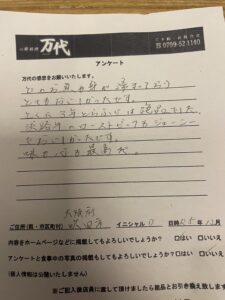 心郷料理 万代
ご予約・お問合せ
☎ 0799-52-1140
アンケート
万代の感想をお願いいたします。
どのお魚も身が締まっており
とてもおいしかったです。
とくに3年とらふぐは絶品でした。
淡路牛のローストビーフもジューシー
でおいしかったです。
味も心も最高だ。
大阪府
ご住所(県・市区町村) 吹田市 イニシャル 日時 R5年12月
内容をホームページなどに掲載してもよろしいでしょうか? □はい □いいえ
アンケートと食事中の写真の掲載もしてもよろしいでしょうか? □はい □いいえ
(個人情報は公開いたしません)
※ご記入後店員に渡して頂けましたら粗品とお引き換え致